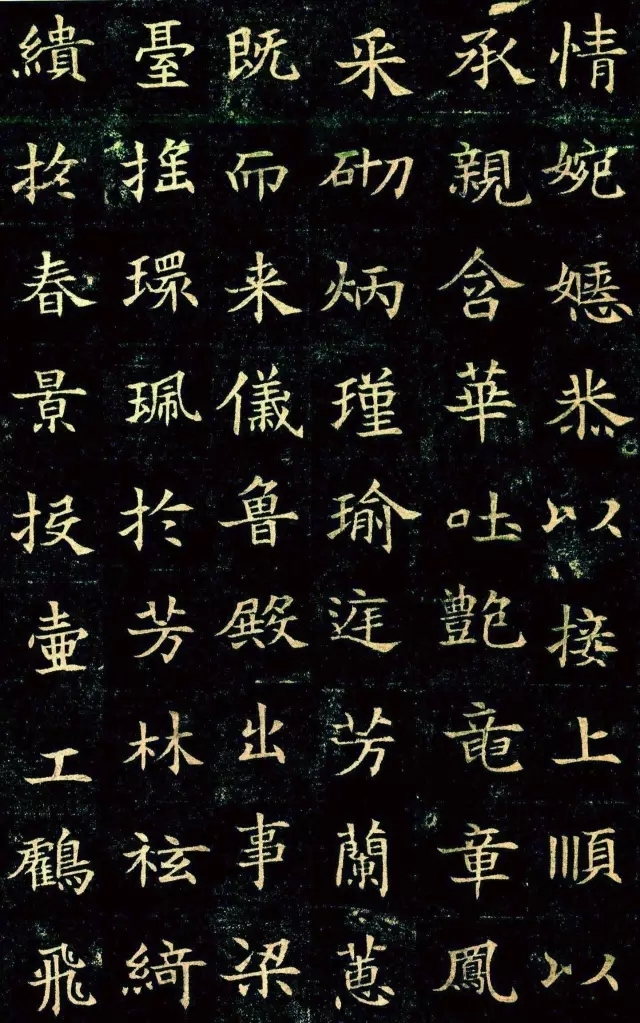 情婉嫕恭以接上順以
承親含華吐艷竜章鳳
采砌炳瑾瑜庭芳蘭蕙
既而来儀魯殿出事梁
臺摇環珮於芳林袨綺
繢於春景投壺工鸖飛